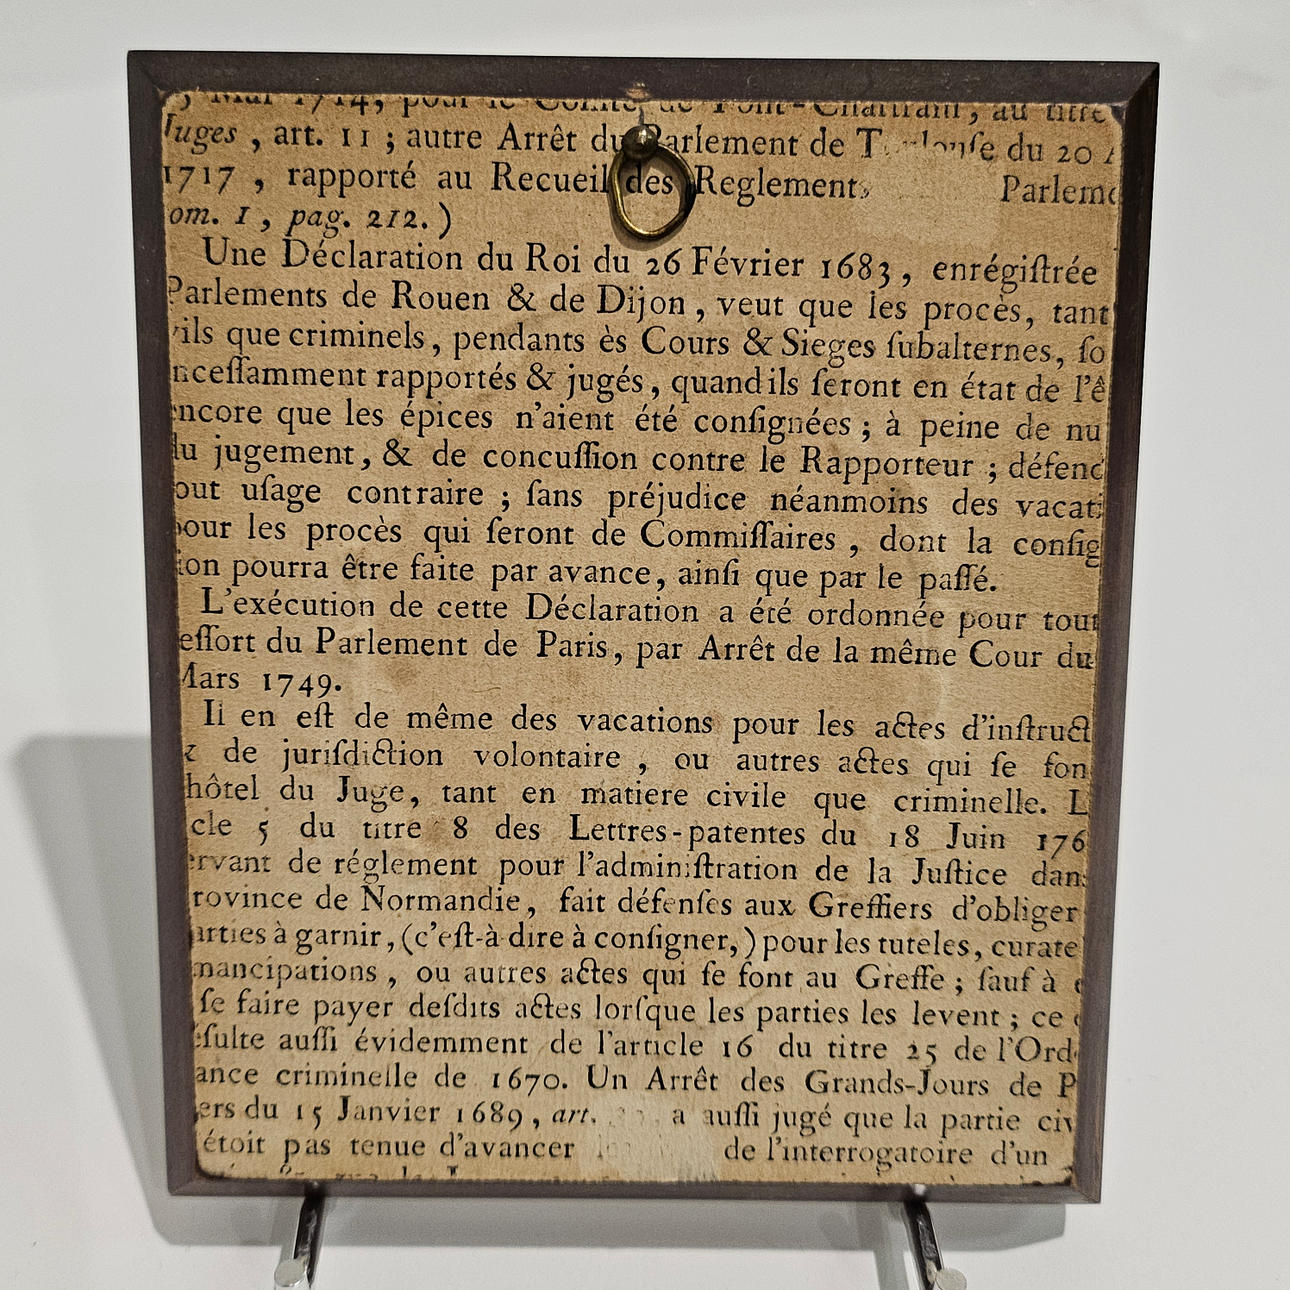 Mai 1714, pour le Comte de Pont-Chartrain, au titre
Juges, art. 11 ; autre Arrêt du Parlement de Toulouſe du 20
1717, rapporté au Recueil des Reglements Parleme
om. 1, pag. 212.)
Une Déclaration du Roi du 26 Février 1683, enrégiſtrée
Parlements de Rouen & de Dijon, veut que les procès, tant
vils que criminels, pendants ès Cours & Sieges ſubalternes, ſo
nceſſamment rapportés & jugés, quand ils ſeront en état de l'ê
encore que les épices n'aient été conſignées ; à peine de nu
du jugement, & de concuſſion contre le Rapporteur ; défend
out uſage contraire ; ſans préjudice néanmoins des vacati
pour les procès qui ſeront de Commiſſaires, dont la conſig
ion pourra être faite par avance, ainſi que par le paſſé.
L'exécution de cette Déclaration a été ordonnée pour tout
eſſort du Parlement de Paris, par Arrêt de la même Cour du
Mars 1749.
Il en eſt de même des vacations pour les actes d'inſtruct
& de juriſdiction volontaire, ou autres actes qui ſe fon
hôtel du Juge, tant en matiere civile que criminelle. L
cle 5 du titre 8 des Lettres-patentes du 18 Juin 176
ervant de réglement pour l'adminiſtration de la Juſtice dans
rovince de Normandie, fait défenſes aux Greffiers d'obliger
arties à garnir, (c'eſt-à-dire à conſigner,) pour les tuteles, curate
mancipations, ou autres actes qui ſe font au Greffe ; ſauf à
ſe faire payer deſdits actes lorſque les parties les levent ; ce
éſulte auſſi évidemment de l'article 16 du titre 25 de l'Ord
ance criminelle de 1670. Un Arrêt des Grands-Jours de P
ers du 15 Janvier 1689, art. a auſſi jugé que la partie civ
étoit pas tenue d'avancer de l'interrogatoire d'un